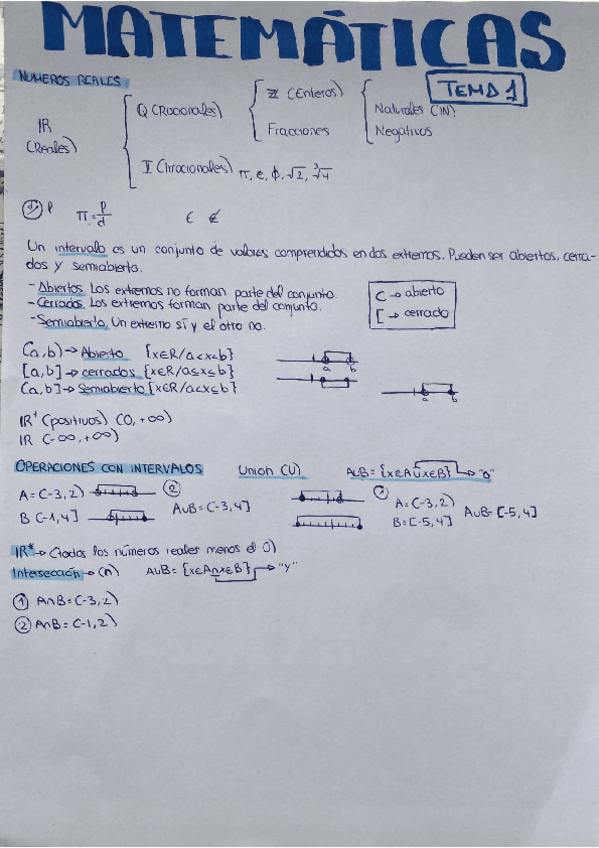 MATEMÁTICAS
NUMEROS REALES
TEMA 1
IR (Reales)
Q (Racionales)
ℤ (Enteros)
Naturales (IN)
Negativos
Fracciones
I (Irracionales) π, e, ϕ, √2, ∛4
d P π = P/d ∈ ∉
Un intervalo es un conjunto de valores comprendidos en dos extremos. Pueden ser abiertos, cerra-
dos y semiabierto.
- Abiertos. Los extremos no forman parte del conjunto.
- Cerrados. Los extremos forman parte del conjunto.
- Semiabierto. Un extremo sí y el otro no.
( → abierto
[ → cerrado
(a,b) → Abierto {x∈R/a<x<b}
[a,b] → cerrados {x∈R/a≤x≤b}
(a,b] → Semiabierto {x∈R/a<x≤b}
a b
a
a b
IR⁺ (positivos) (0, +∞)
IR (-∞, +∞)
OPERACIONES CON INTERVALOS Unión (U) AUB = {x∈A U x∈B} → "o"
A = (-3,2)
B (-1,4]
② AUB = (-3,4]
① A = (-3,2)
B = [-5,4]
AUB = [-5,4]
IR* → (todos los números reales menos el 0)
Intersección → (∩) AUB = {x∈A ∩ x∈B} → "y"
① A∩B = (-3,2)
② A∩B = (-1,2)